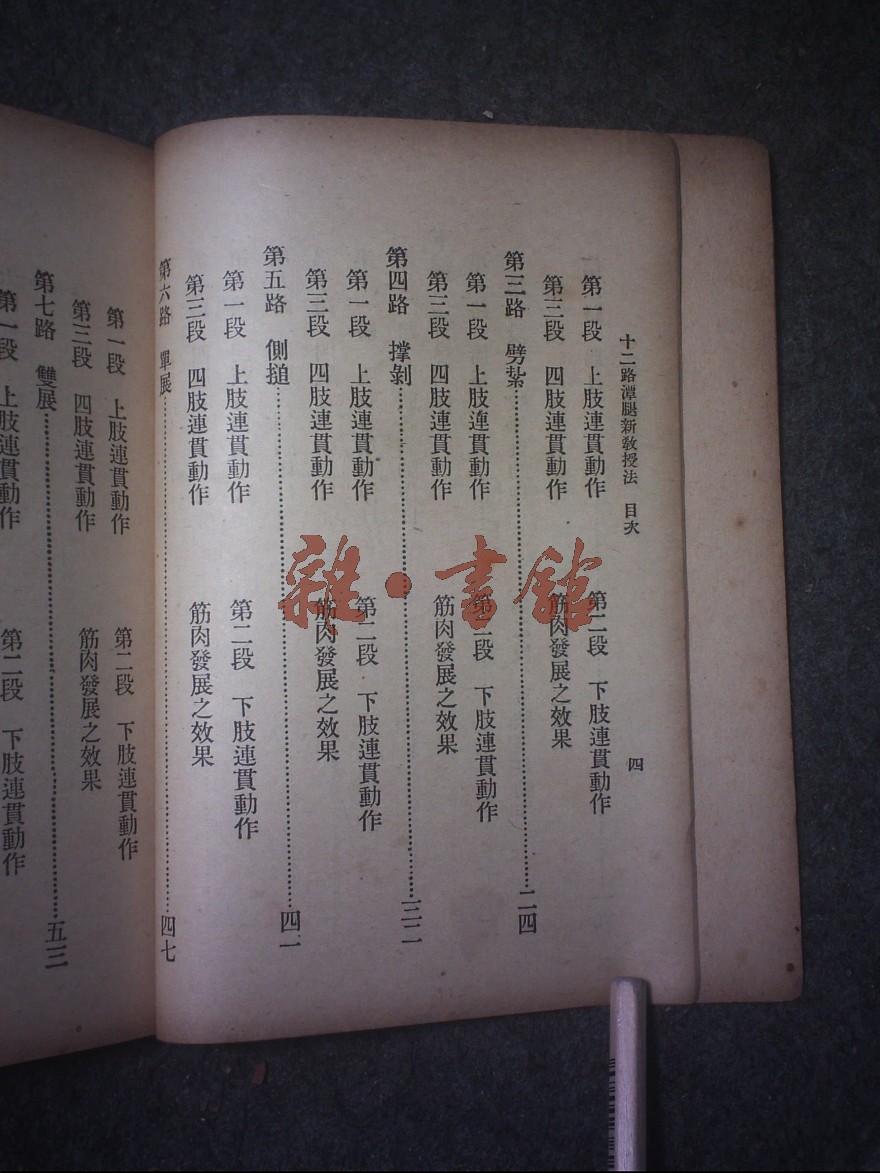 十二路潭腿新敎授法　目次　四
第一段　上肢連貫動作　第二段　下肢連貫動作
第三段　四肢連貫動作　筋肉發展之效果
第三路　劈紮……二四
第一段　上肢連貫動作　第二段　下肢連貫動作
第三段　四肢連貫動作　筋肉發展之效果
第四路　撑剝……三二
第一段　上肢連貫動作　第二段　下肢連貫動作
第三段　四肢連貫動作　筋肉發展之效果
第五路　側搥……四一
第一段　上肢連貫動作　第二段　下肢連貫動作
第三段　四肢連貫動作　筋肉發展之效果
第六路　單展……四七
第一段　上肢連貫動作　第二段　下肢連貫動作
第三段　四肢連貫動作　筋肉發展之效果
第七路　雙展……五三
第一段　上肢連貫動作　第二段　下肢連貫動作
雜·書館